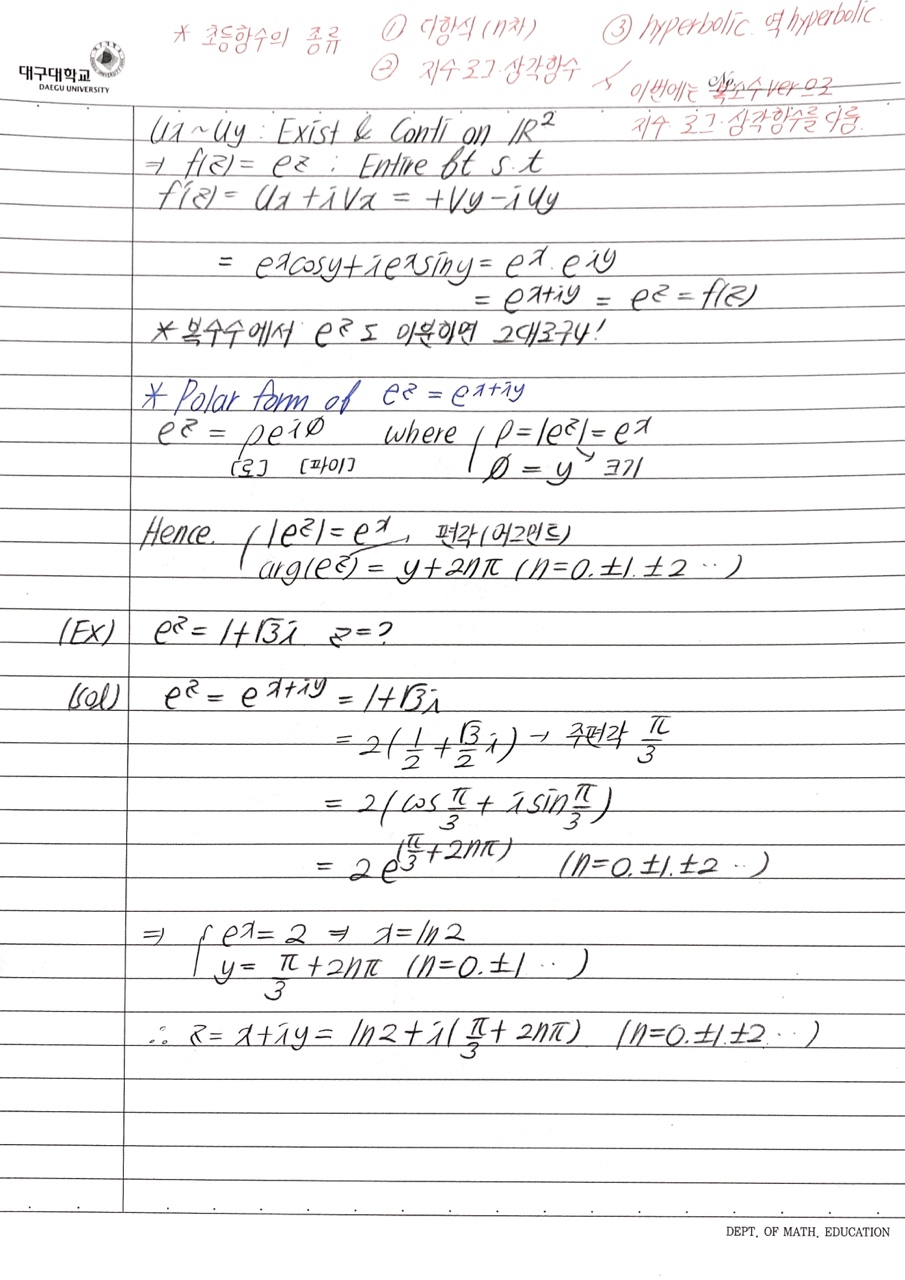 * 초등함수의 종류 ① 다항식(n차) ③ hyperbolic. 역hyperbolic.
② 지수·로그·삼각함수
이번에는 복소수ver으로
지수·로그·삼각함수를 다룸.
대구대학교
DAEGU UNIVERSITY
Ux ~ Uy : Exist & Conti on ℝ²
⇒ f(z) = e^z : Entire ft s.t
f'(z) = Ux + iVx = +Vy - iUy
= e^x cosy + ie^x siny = e^x · e^iy
= e^x+iy = e^z = f(z)
* 복수수에서 e^z도 미분하면 그대로구나!
* Polar form of e^z = e^x+iy
e^z = ρe^iø where ρ = |e^z| = e^x
[로] [파이] ø = y 크기
Hence. |e^z| = e^x, 편각(어그먼트)
arg(e^z) = y + 2nπ (n=0.±1.±2 ··)
(Ex) e^z = 1+√3i z=?
(sol) e^z = e^x+iy = 1+√3i
= 2(1/2 + √3/2 i) → 주편각 π/3
= 2(cos π/3 + i sin π/3)
= 2e^(π/3 + 2nπ) (n=0.±1.±2 ··)
⇒ e^x = 2 ⇒ x = ln2
y = π/3 + 2nπ (n=0.±1 ··)
∴ z = x+iy = ln2 + i(π/3 + 2nπ) (n=0.±1.±2 ··)
DEPT. OF MATH. EDUCATION